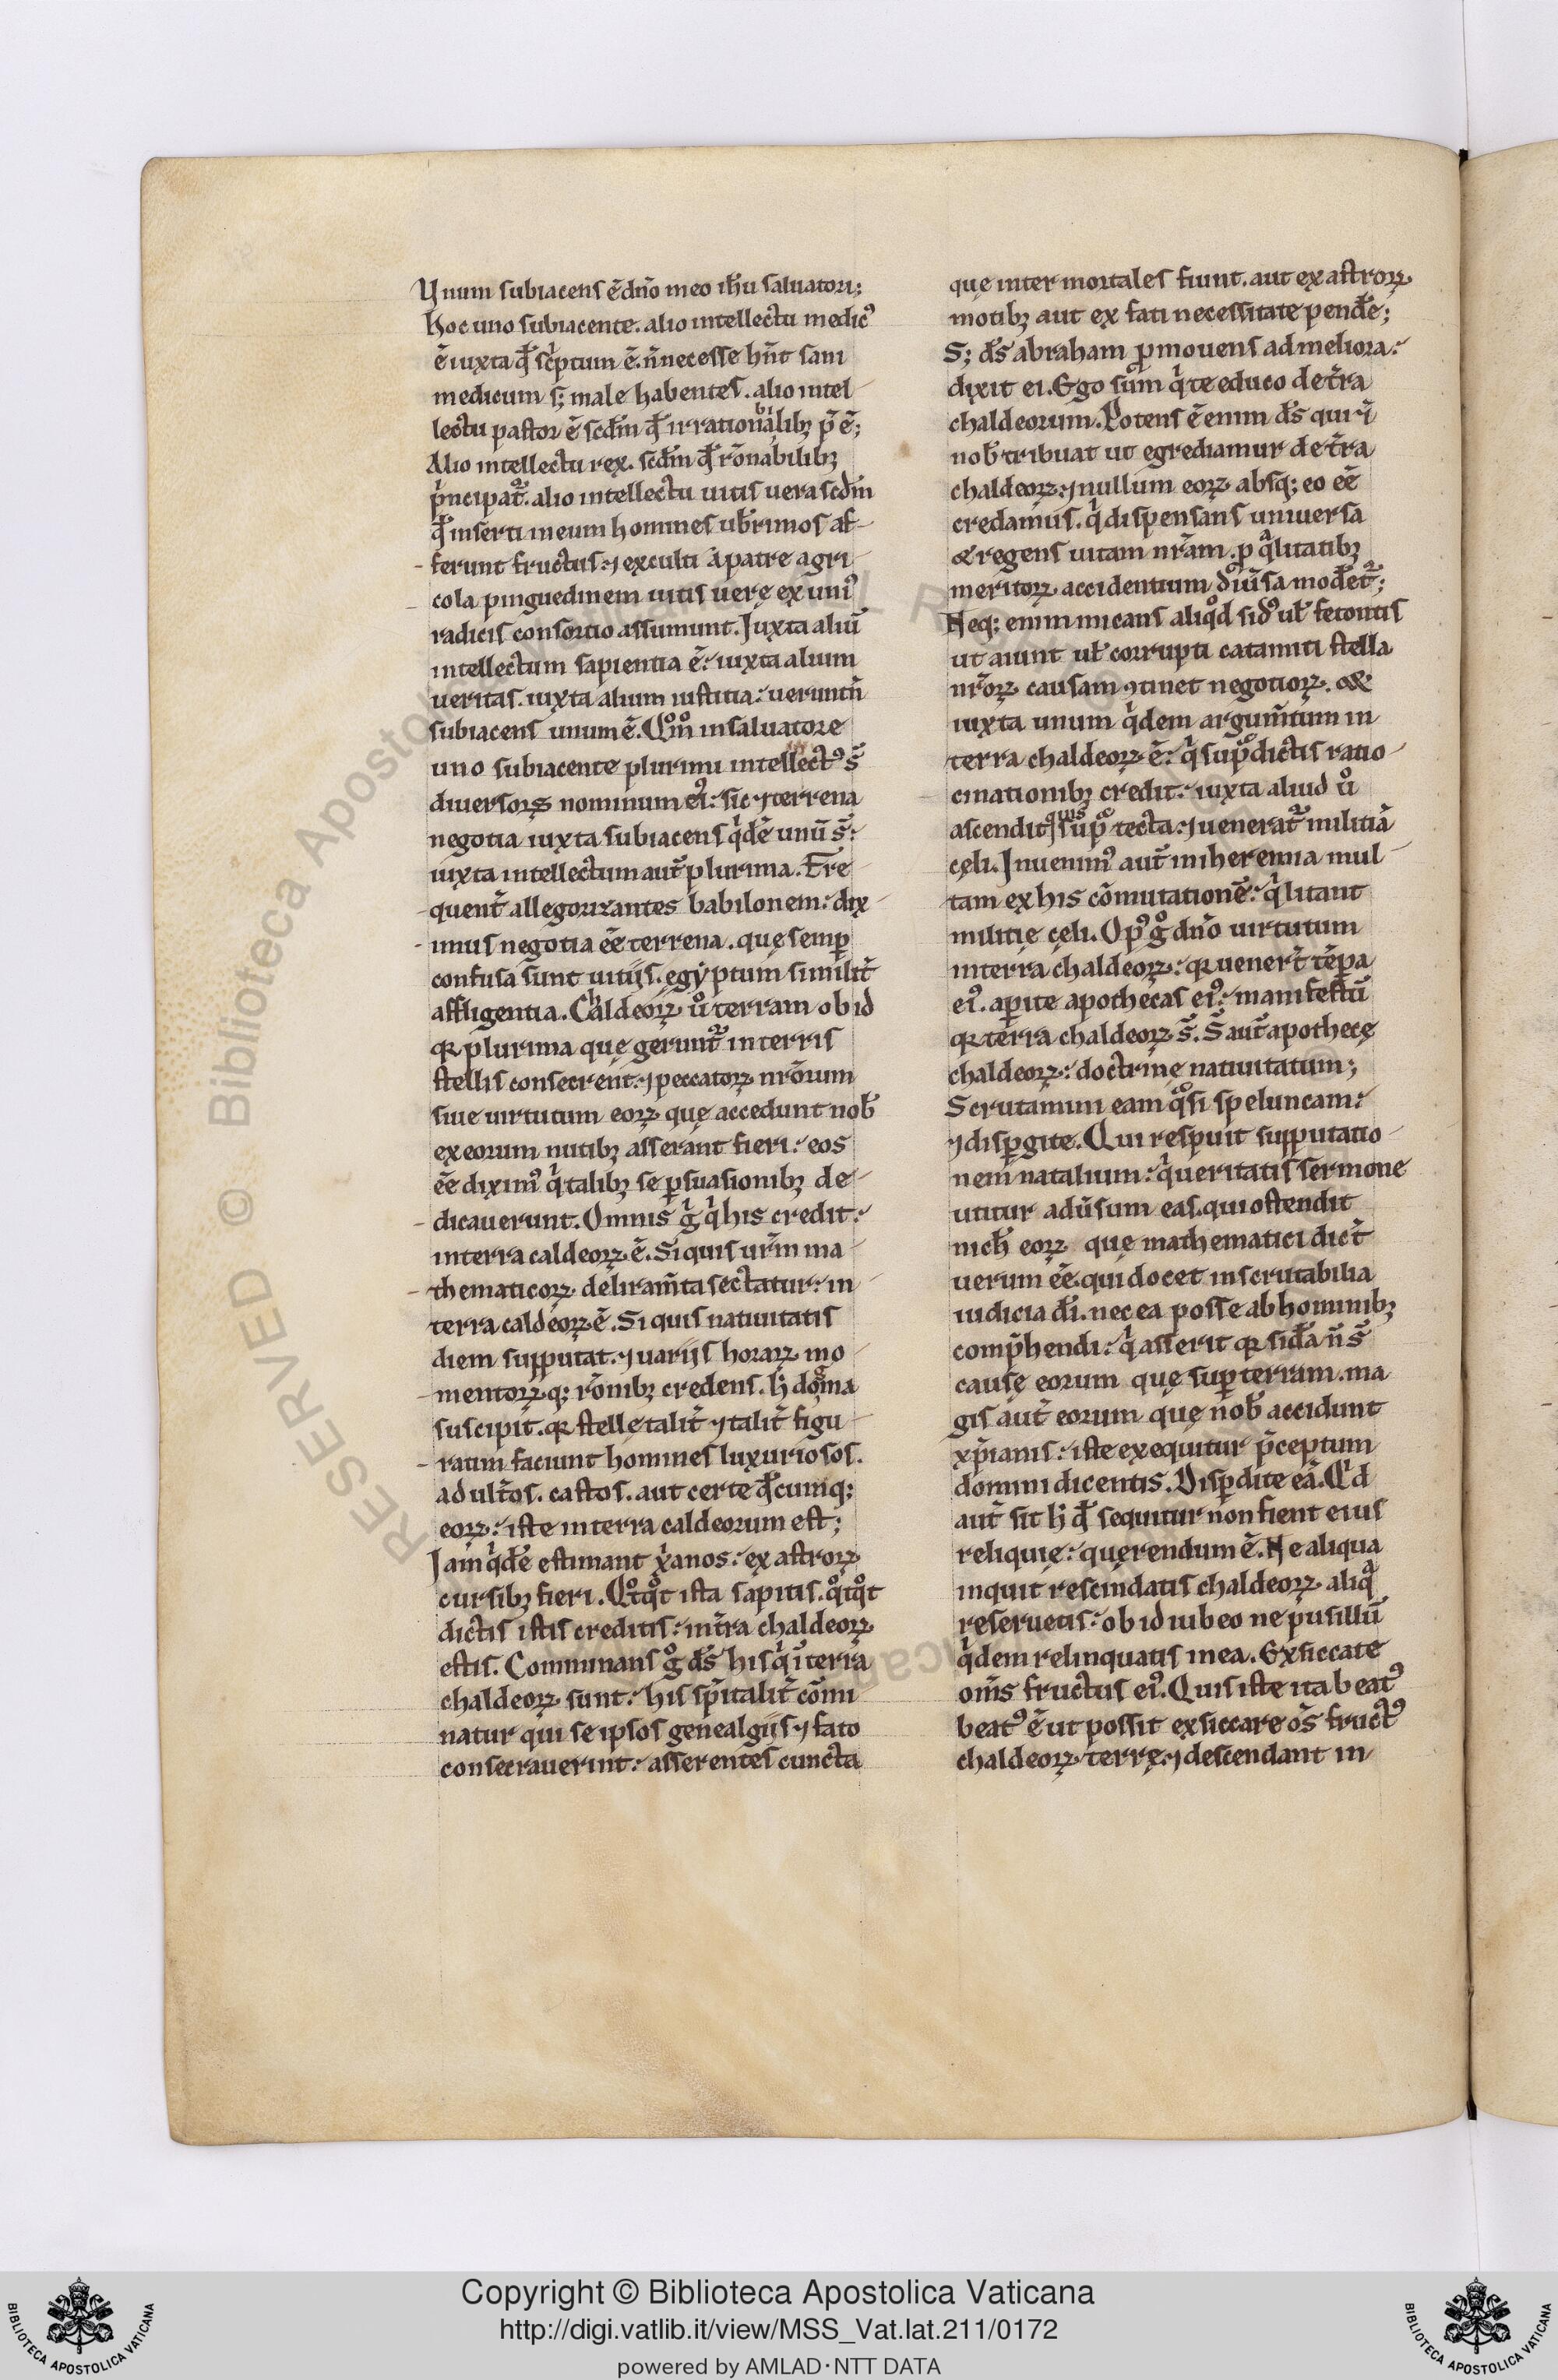 Unum subiacens ē dn̄o meo ih̄u saluatori;
Hoc uno subiacente. alio intellectu medicꝰ
ē iuxta qđ scͥptum ē. n̄ necesse hn̄t sani
medicum s; male habentes. alio intel-
lectu pastor ē scđm qđ irrationabͥlibꝫ p̄ ē;
Alio intellectu rex. scđm qđ rōnabilibꝫ
pͥncipat᷑. alio intellectu uitis uera scđm
qđ inserti in eum homines ub̄rimos af-
ferunt fructus. ⁊ exculti à patre agri-
cola pinguedinem uitis uerę ex uniꝰ
radicis consortio assumunt. Iuxta aliū
intellectum sapientia ē. iuxta alium
ueritas. iuxta alium iustitia. ueruntn̄
subiacens unum ē. Qͦm̊ in saluatore
uno subiacente plurimi intellectꝰ s̄
diuersoꝝ nominum eiꝰ. sic ⁊ terrena
negotia iuxta subiacens qͥdē unū s̄.
iuxta intellectum aut̄ plurima. Fre-
quent̄ allegorizantes babilonem. dix-
imus negotia eē terrena. quę semꝑ
confusa sunt uitijs. egyptum similit̄
affligentia. Chaldeoꝝ ůo terram ob id
qꝛ plurima quę gerunt᷑ in terris
stellis consecrent. ⁊ peccatoꝝ nr̄orum
siue uirtutum eoꝝ quę accedunt nob̄
ex eorum nutibꝫ asserant fieri. eos
eē diximꝰ qͥ talibꝫ se ꝑsuasionibꝫ de-
dicauerunt. Omnis gͥ qͥ his credit.
in terra caldeoꝝ ē. Si quis ur̄m ma-
thematicoꝝ deliram̄ta sectatur. in
terra caldeoꝝ ē. Si quis natiuitatis
diem supputat. ⁊ uarijs horaꝝ mo-
mentoꝝq; rōnibꝫ credens. hͥ dogma
suscipit. qꝛ stellę talit̄ ⁊ talit̄ figu-
ratim faciunt homines luxuriosos.
adult̄os. castos. aut certe qđcumq;
eoꝝ. iste in terra caldeorum est;
Iam qͥdē estimant xͥanos. ex astroꝝ
cursibꝫ fieri. Qͦtqͦt ista sapitis. qͦtqͦt
dictis istis creditis. in t̄ra chaldeoꝝ
estis. Communans gͦ dš his qͥ ī terra
chaldeoꝝ sunt. his sp̄italit̄ cōmi
natur qui se ipsos genealgijs ⁊ fato
consecrauerint. asserentes cuncta
quę inter mortales fiunt. aut ex astroꝝ
motibꝫ aut ex fati necessitate pendēe;
S; dš abraham ꝓmouens ad meliora.
dixit ei. Ego sum qͥ te educo de t̄ra
chaldeorum. Potens ē enim dš qui ⁊
nob̄ tribuat ut egrediamur de t̄ra
chaldeoꝝ. ⁊ nullum eoꝝ absq; eo eē
credamus. qͥ dispensans uniuersa
& regens uitam nr̄am. ꝓ qͣlitatibꝫ
meritoꝝ accidentium diūsa modet᷑;
Neq; enim micans aliqͦd sidꝰ ul̄ fetontis
ut aiunt ul̄ corrupti catamiti stella
nr̄oꝝ causam ꝯtinet negotioꝝ. &
iuxta unum qͥdem argum̄tum in
terra chaldeoꝝ ē. qͥ supͣdictis ratio-
cinationibꝫ credit. iuxta aliud ůo
ascendit quis supͣ tecta. ⁊ uenerat᷑ militiā
cęli. Inuenimꝰ aut̄ in iheremia mul-
tam ex his cōmutationē. qͥ litant
militię cęli. Opꝰ gͦ dn̄o uirtutum
in terra chaldeoꝝ. qꝛ uener̄t tēpa
eiꝰ. aperite apothecas eiꝰ. manifestū
qꝛ terra chaldeoꝝ s̄. S̄ aut̄ apothecę
chaldeoꝝ. doctrinę natiuitatum;
Scrutamini eam qͦsi speluncam.
⁊ disꝑgite. Qui respuit supputatio-
nem natalium. qͥ ueritatis sermone
utitur aduersum eas. qui ostendit
nich̄ eoꝝ quę mathematici dic̄t
uerum eē. qui docet inscrutabilia
iudicia dī. nec ea posse ab hominibꝫ
comp̄hendi. qͥ asserit qꝛ sid̄a n̄ s̄
causę eorum quę suꝑ terram. ma
gis aut̄ eorum quę nob̄ accidunt
xp̄ianis. iste exequitur p̄ceptum
domini dicentis. Disꝑdite eā. Qͥd
aut̄ sit hͥ qđ sequitur non fient eius
reliquię. quęrendum ē. Ne aliqua
inquit rescindatis chaldeoꝝ aliqͣ
reseruetis. ob id iubeo ne pusillū
qͥdem relinquatis in ea. Exsiccate
om̄s fructus eiꝰ. Quis iste ita beatꝰ
beatꝰ ē ut possit exsiccare os̄ fructꝰ
chaldeoꝝ terrę. ⁊ descendant in
RESERVED © Biblioteca Apostolica Vaticana
Copyright © Biblioteca Apostolica Vaticana
http://digi.vatlib.it/view/MSS_Vat.lat.211/0172
powered by AMLAD·NTT DATA
BIBLIOTECA APOSTOLICA VATICANA
BIBLIOTECA APOSTOLICA VATICANA